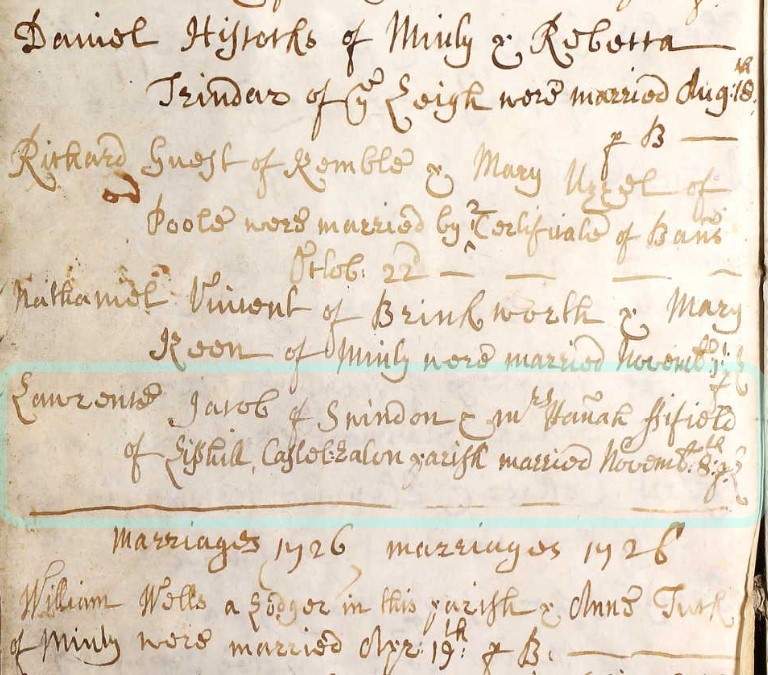 Daniel Hiscocks of Minty & Rebecca
Trinder of ye Leigh were married Aug: 18th
p B
Richard Guest of Kemble & Mary Uzzel of
Poole were married by Certificate of Bans
Octob: 22d
Nathaniel Vincent of Brinkworth & Mary
Keen of Minty were married Novemb:
Lawrence Jacob of Swindon & Mrs Hanah ffifield
of Liphill, Castle-Eaton parish married Novemb: 8th
Marriages 1726 marriages 1726
William Wells a Lodger in this parish & Anne Turk
of Minty were married Apr: 19th: p B: